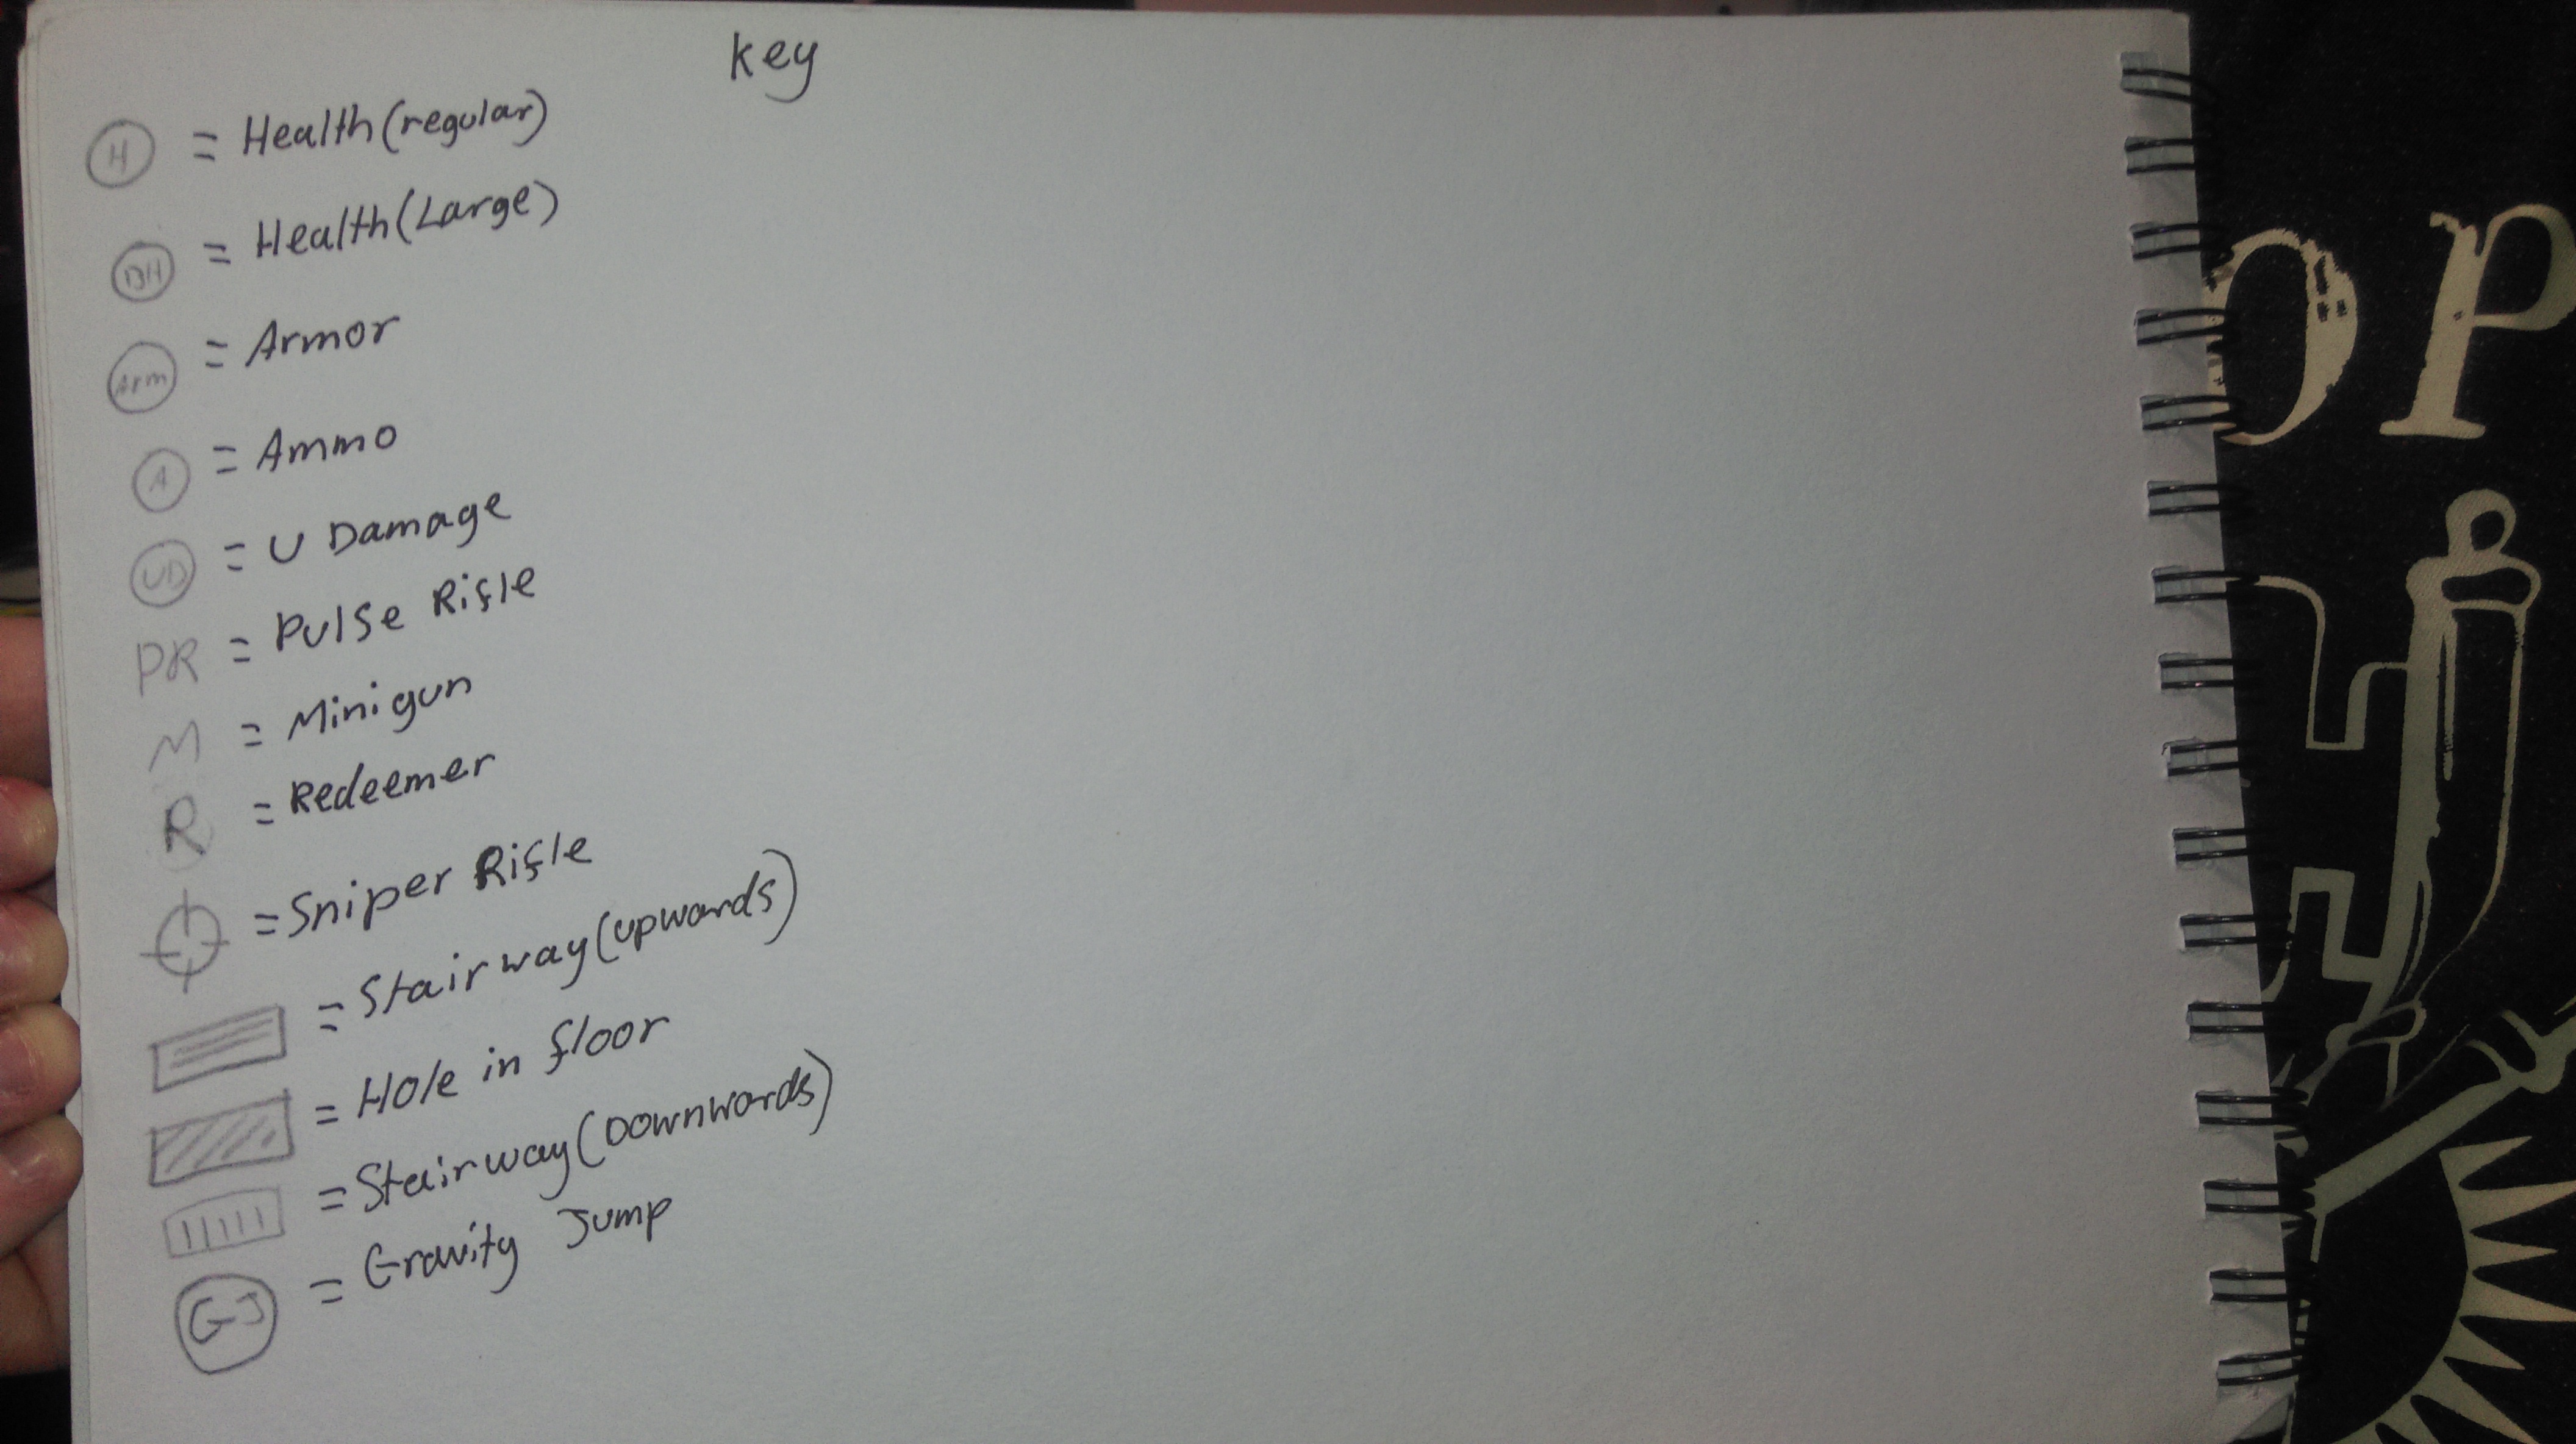 key
H = Health (regular)
BH = Health (Large)
Arm = Armor
A = Ammo
UD = U Damage
PR = Pulse Rifle
M = Minigun
R = Redeemer
= Sniper Rifle
= Stairway (upwards)
= Hole in floor
= Stairway (Downwards)
GJ = Gravity Jump
OP